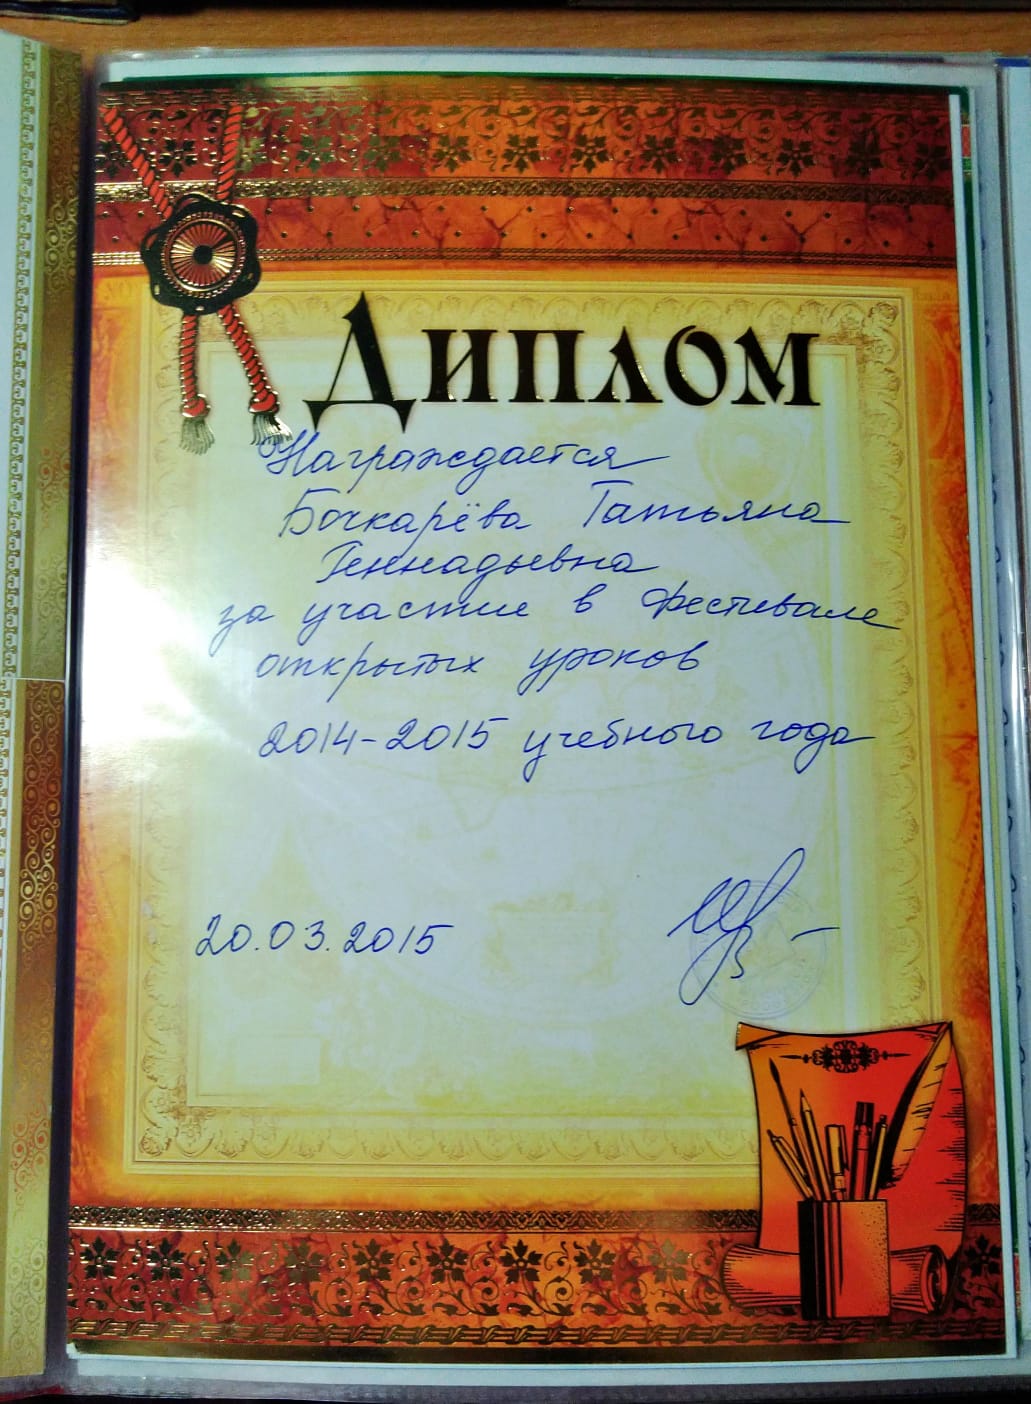 Диплом
Награждается
Бочкарёва Татьяна
Геннадьевна
за участие в Фестивале
открытых уроков
2014-2015 учебного года
20.03.2015